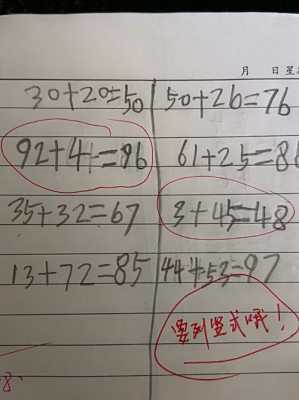 月 日 星
30+20=50 50+26=76
92+4=96 61+25=86
35+32=67 3+45=48
13+72=85 44+53=97
要列竖式哦!